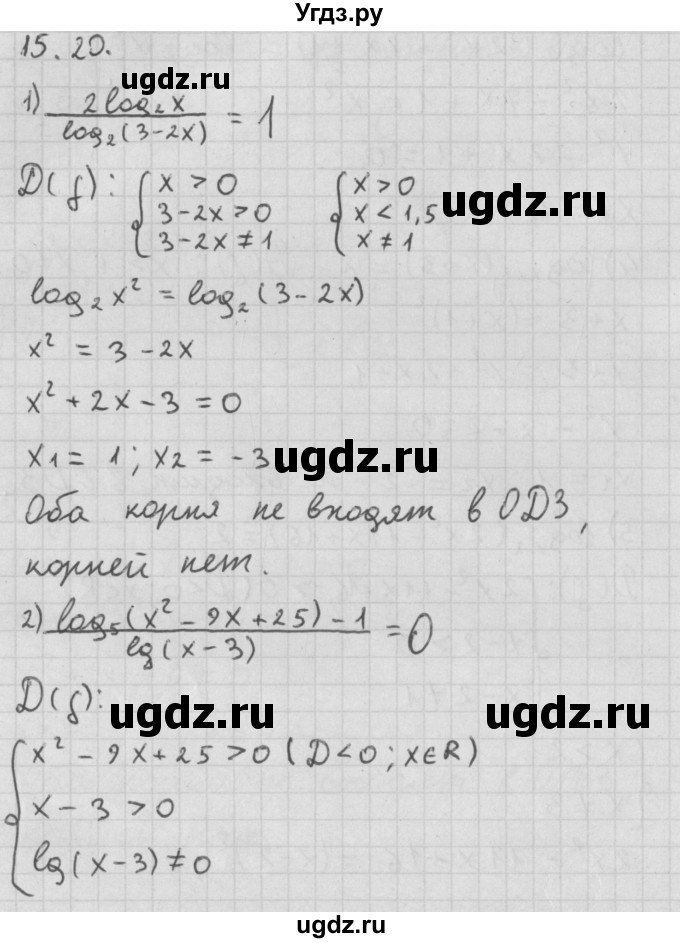 Угдз.ру
15.20.
ugdz.ru
1) 2log₂x / log₂(3-2x) = 1
D(f): { x > 0 { x > 0
3-2x > 0 x < 1,5
3-2x ≠ 1 x ≠ 1
ugdz.ru
log₂x² = log₂(3-2x)
x² = 3-2x
x² + 2x - 3 = 0
x1 = 1; x2 = -3
ugdz.ru
Оба корня не входят в ОДЗ,
корней нет.
2) log₅(x² - 9x + 25) - 1 / lg(x-3) = 0
D(f):
ugdz.ru ugdz.ru
{ x² - 9x + 25 > 0 (D<0; x∈R)
x - 3 > 0
lg(x-3) ≠ 0
ugdz.ru